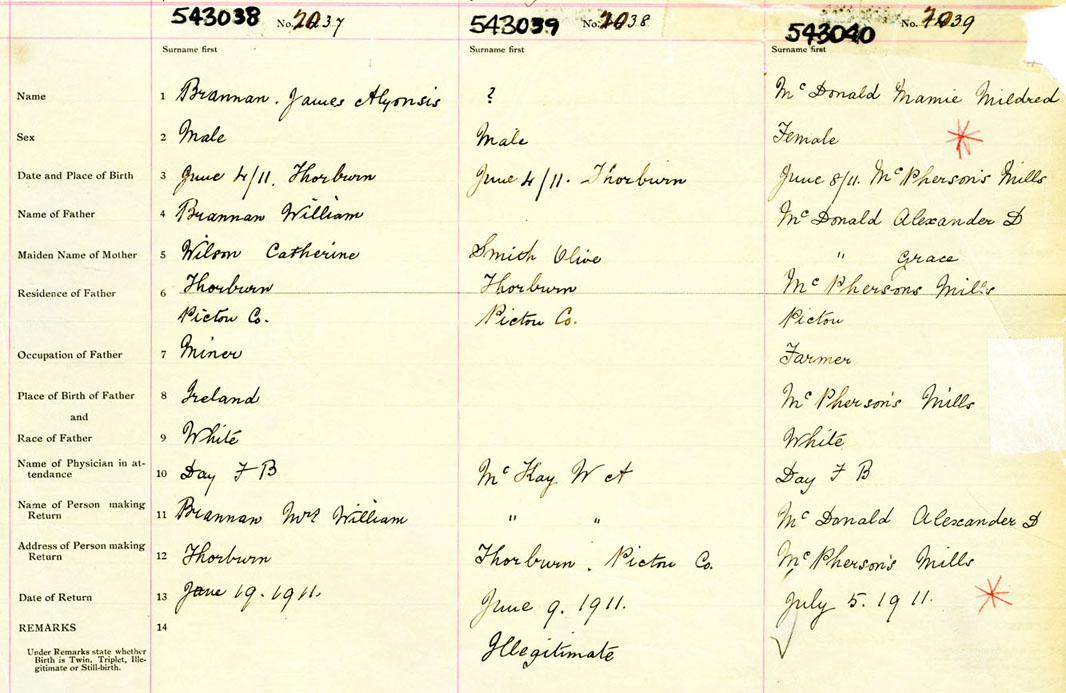 543038 No. 2037 543039 No. 2038 543040 No. 2039
Surname first Surname first Surname first
Name 1 Brannan. James Alyonsis ? McDonald Mamie Mildred
Sex 2 Male Male Female
Date and Place of Birth 3 June 4/11. Thorburn June 4/11. Thorburn June 8/11. McPherson's Mills
Name of Father 4 Brannan William McDonald Alexander D
Maiden Name of Mother 5 Wilson Catherine Smith Olive " Grace
Residence of Father 6 Thorburn Thorburn McPhersons Mills
Pictou Co. Pictou Co. Pictou
Occupation of Father 7 Miner Farmer
Place of Birth of Father 8 Ireland McPherson's Mills
and
Race of Father 9 White White
Name of Physician in at-
tendance 10 Day F B McKay W A Day F B
Name of Person making
Return 11 Brannan Mrs William " " McDonald Alexander D
Address of Person making
Return 12 Thorburn Thorburn. Pictou Co. McPherson's Mills
Date of Return 13 June 19. 1911. June 9. 1911. July 5. 1911.
REMARKS 14 Illegitimate
Under Remarks state whether
Birth is Twin, Triplet, Ille-
gitimate or Still-birth.